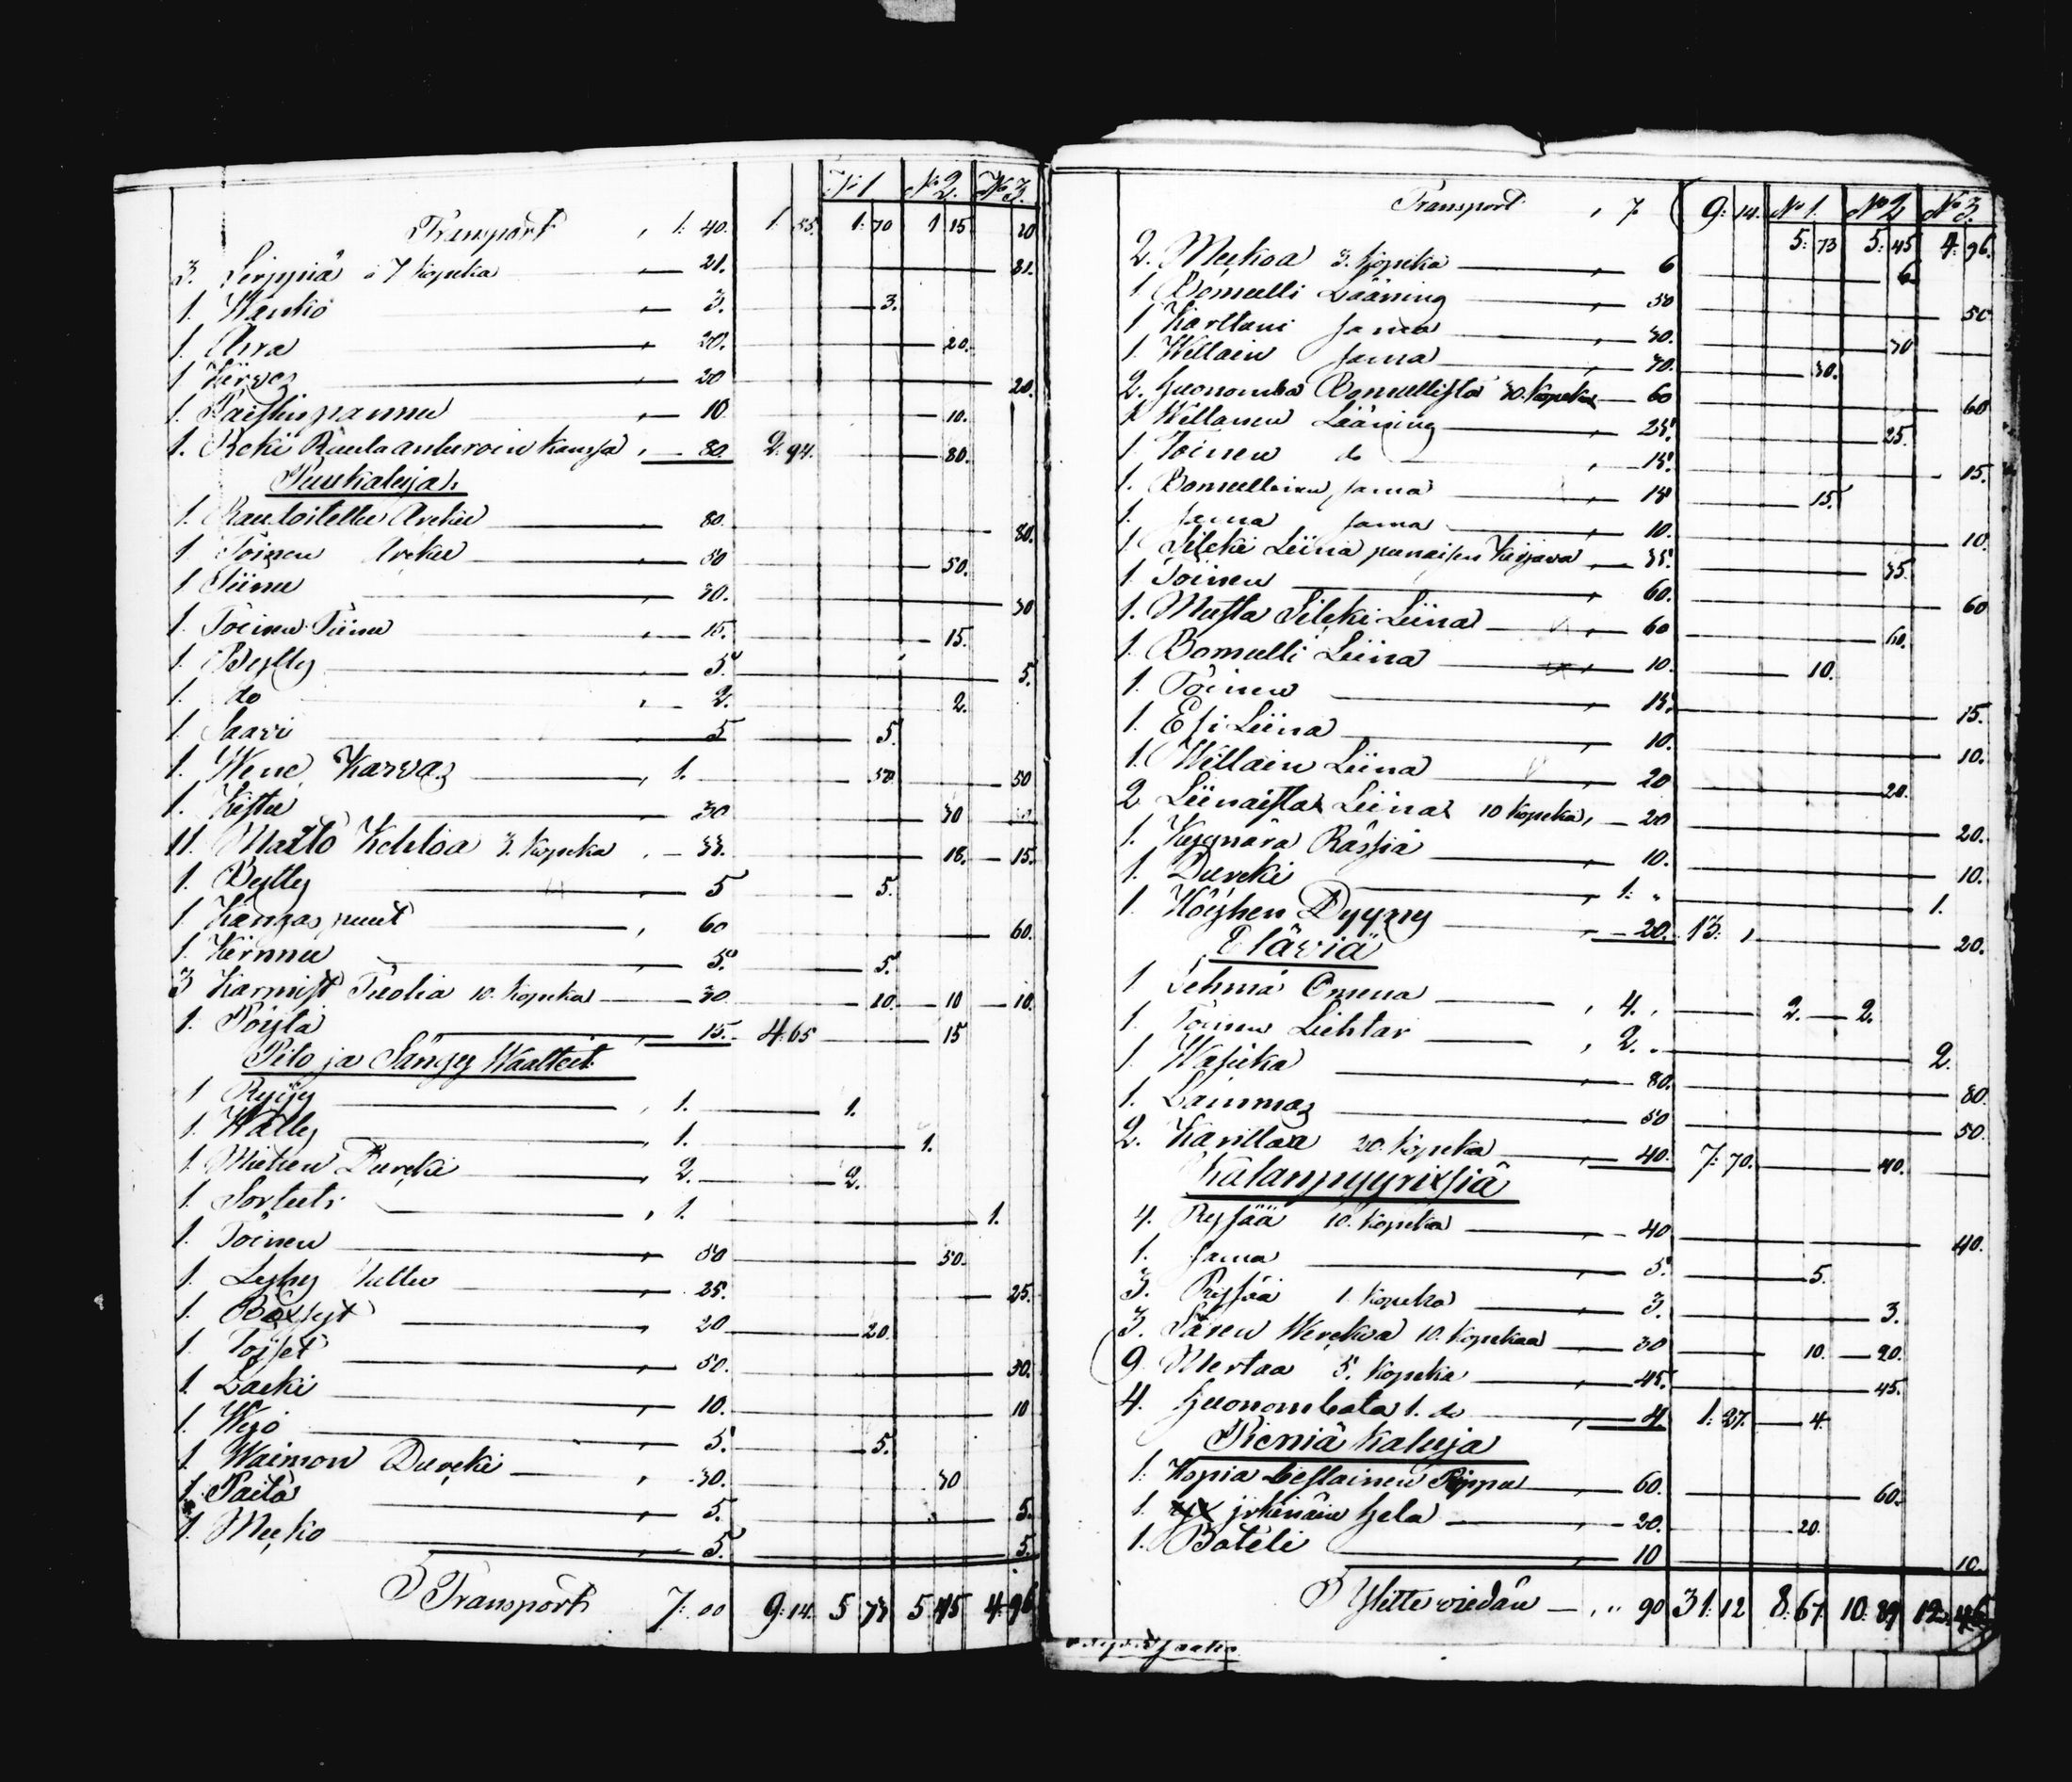 No 1 No 2. No 3.
Transport , 1: 40. 1: 55. 1: 70 1 15 20
3. Sirppiä à 7 Kopeka 21. 21.
1. Wanko 3. 3.
1. Aira 20. 20.
1 Kirves 20 20.
1. Paistinpannu 10 10.
1. Reki Rauta anturoin kanssa 80. 2. 94. 80.
Puukaluja.
1. Rautoitettu Arkku 80. 80.
1 Toinen Arkku 50 50.
1 Tiinu 30. 30
1. Toinen Tiinu 15. 15.
1. Bytty 5 5.
1. do 2. 2.
1 Saavi 5 5.
1. Wene Karvas 1. 50 50
1. Kistu 30 30
11. Maito Kehloa 3. Kopeka 33. 18. 15.
1. Bytty 5 5.
1 Kangas puut 60 60.
1 Kirnnu 5. 5.
3 Karmist Tuolia 10. Kopeka 30 10. 10 10.
1. Pöytä 15. 4 65 15
Pito ja Sängyn Waatteit
1 Ryijy 1. 1.
1. Wälly 1. 1.
1 Miehen Turcki 2. 2.
1. Sortuti 1. 1.
1. Toinen 50 50.
1. Lyhy 25. 25.
1. Böxsyt 20 20.
1 Toiset 50. 50.
1 Lacki 10. 10
1. Wyö 5 5.
1 Waimon Turcki 30. 30
1. Paita 5. 5.
1. Mecko 5. 5.
Transport 7: 00 9: 14. 5 73 5 45 4: 96
Transport , 7. 9: 14. No 1. No 2 No 3.
5: 73 5: 45 4: 96.
2. Meckoa 3. Kopeka 6 6
1 Bomulli Lääning 50 50
1 Karttuni sama 30. 30
1. Willain sama 30. 30.
2. Huonomba Bomullista 30. Kopeka 60 60
1 Willanen Lääning 25. 25.
1 Toinen do 15. 15.
1. Bomullinen sama 15 15.
1. sama sama 10. 10.
1 Silcki Liina punaisen Kirjava 35. 35.
1. Toinen 60. 60
1. Musta Silcki Liina 60 60.
1 Bomulli Liina 10. 10.
1. Toinen 15. 15.
1. Esi Liina 10. 10.
1. Willain Liina 20 20.
2 Liinaista Liina 10 Kopeka, 20 20.
1. Kyynärä Rässiä 10. 10.
1. Turcki 1: „ 1.
1 Köyhen Dyyny 20. 13: , 20.
Eläviä
1 Lehmä Omena , 4. , 2. 2.
1. Toinen Liehtar , 2. „ 2.
1 Wasicka 80. 80.
1. Lammas 50 50.
2. Karittaa 20. Kopeka 40. 7: 70. 40.
Kalanpyyrixsiä
4. Rysää 10. Kopeka 40 40.
1. sama 5. 5.
3. Rysää 1. Kopeka 3. 3.
3. Sären Werckoa 10. Kopekaa 30 10. 20.
9. Mertaa 5. Kopeka 45. 45.
4. Huonombata 1. do 4 1: 27. 4.
Pieniä Kaluja
1: Kopia 60. 60.
1. Hela 20. 20.
1. Boteli 10 10.
Ylitte viedän „ 90 31: 12 8: 67. 10: 89 12: 46